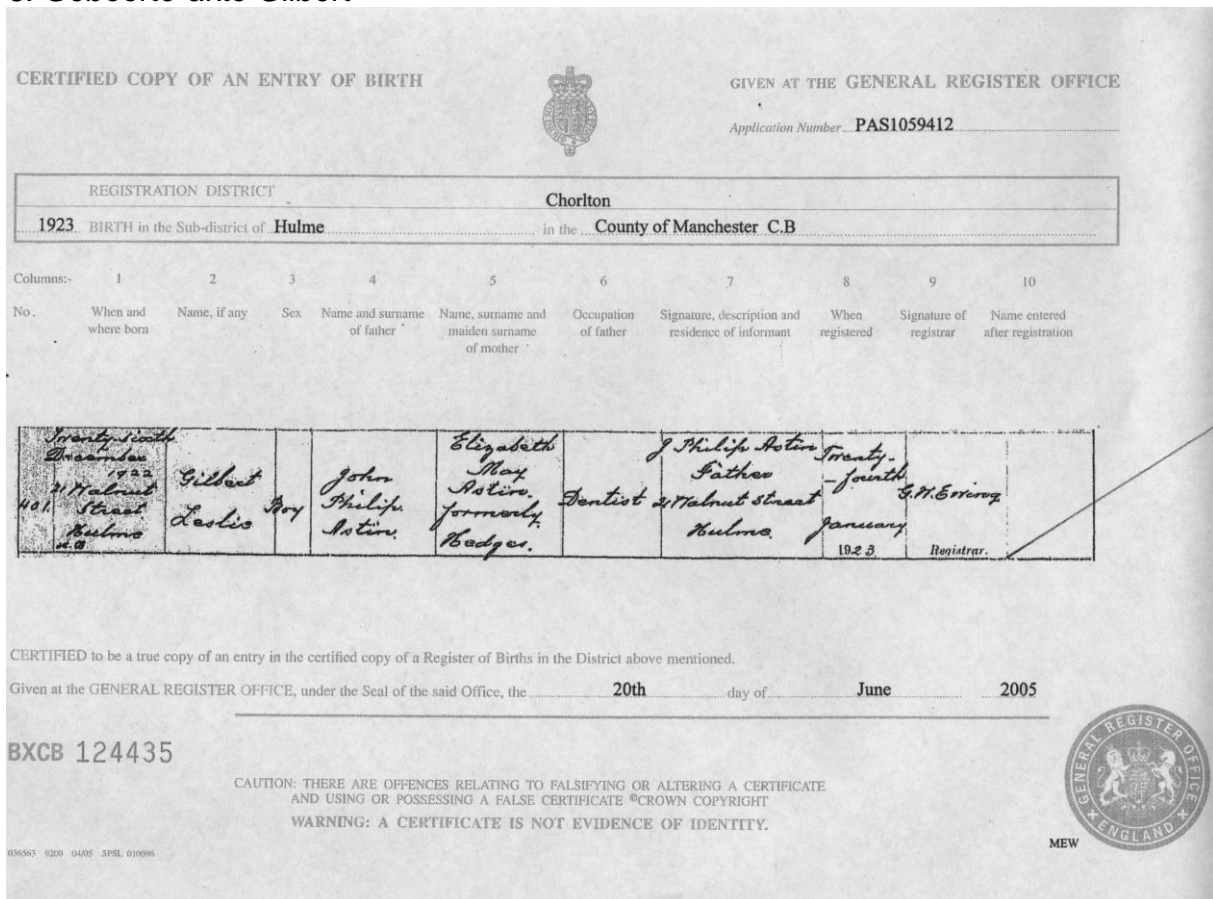 CERTIFIED COPY OF AN ENTRY OF BIRTH
GIVEN AT THE GENERAL REGISTER OFFICE
Application Number PAS1059412
REGISTRATION DISTRICT Chorlton
1923 BIRTH in the Sub-district of Hulme in the County of Manchester C.B
Columns:- 1 2 3 4 5 6 7 8 9 10
No. When and where born
Name, if any
Sex
Name and surname of father
Name, surname and maiden surname of mother
Occupation of father
Signature, description and residence of informant
When registered
Signature of registrar
Name entered after registration
401.
Twenty-sixth
December
1922
21 Walnut
Street
Hulme
Gilbert
Leslie
Boy
John
Philip.
Astin.
Elizabeth
May
Astin.
formerly
Hedges.
Dentist
J Philip Astin
Father
21 Walnut Street
Hulme.
Twenty-
-fourth
January
1923
Registrar.
CERTIFIED to be a true copy of an entry in the certified copy of a Register of Births in the District above mentioned.
Given at the GENERAL REGISTER OFFICE, under the Seal of the said Office, the 20th day of June 2005
BXCB 124435
CAUTION: THERE ARE OFFENCES RELATING TO FALSIFYING OR ALTERING A CERTIFICATE
AND USING OR POSSESSING A FALSE CERTIFICATE ©CROWN COPYRIGHT
WARNING: A CERTIFICATE IS NOT EVIDENCE OF IDENTITY.
GENERAL REGISTER OFFICE
ENGLAND
MEW
036563 9209 04/05 SPSL 010696